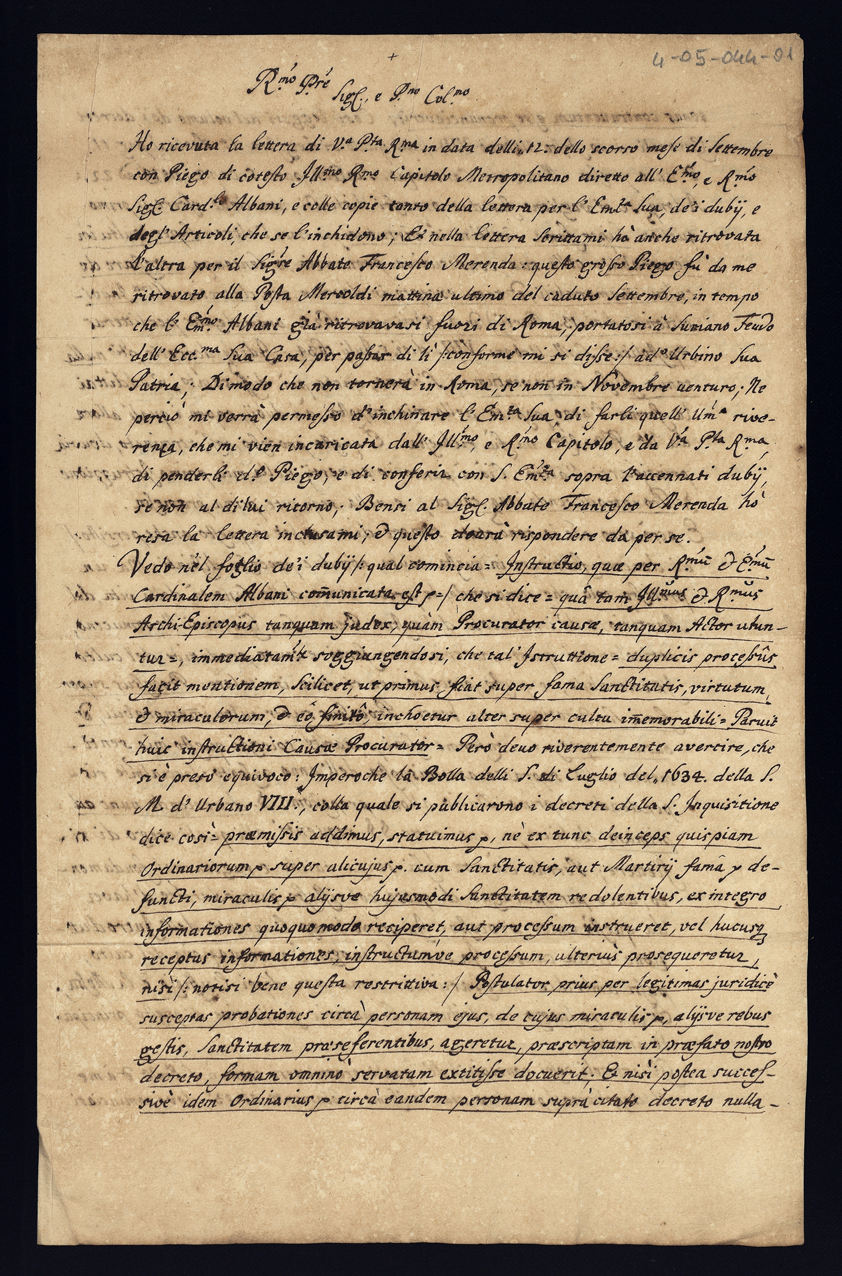 4-05-044-01
+
R.mo P.re
Sig.r, e P.ne Col.mo
Ho ricevuta la lettera di V.a P.tà R.ma in data delli 12: dello scorso mese di Settembre
con Piego di cotesto Jll.mo R.mo Capitolo Metropolitano diretto all' E.mo, e R.mo
Sig.r Card.le Albani, e colle copie tanto della lettera per l' Em.za Sua, de' i dubij, e
degl' Articoli, che se l' inchidono; Et nella lettera scrittami hò anche ritrovata
l' altra per il Sig.re Abbate Francesco Merenda: questo grosso Piego fù da me
ritrovato alla Posta Mercoldì mattina ultimo del caduto Settembre, in tempo
che l' Em.mo Albani già ritrovavasi fuori di Roma, portatosi à Suriano Feudo
dell' Ecc.ma Sua Casa, per passar di lì /:conforme mi si disse:/ ad Urbino Sua
Patria; Di modo che non tornerà in Roma, se non in Novembre venturo; Ne
perciò mi verrà permesso d' inchinare l' Em.za Sua, di farli quell' Um.a rive-
renza, che mi vien incaricata dall' Jll.mo, e R.mo Capitolo, e da V.a P.tà R.ma,
di renderli d.o Piego, e di conferir con S. Em.za sopra l' accennati dubij,
se non al di lui ritorno; Bensi al Sig.r Abbate Francesco Merenda hò
resa la lettera inclusami; & questo dourà rispondere da per se.
Vedo nel foglio de' i dubij /: qual comincia = Instructio, quæ per R.mū & E.mū
Cardinalem Albani com̄unicata est &=/ che si dice = quâ tam Jll.mus & R.mus
Archi-Episcopus tanquam judex, quàm Procurator causæ, tanquam Actor utun-
tur =, immediatam.te soggiungendosi, che tal' Istruttione = duplicis processûs
facit mentionem, scilicet, ut primus fiat super fama Sanctitatis, virtutum,
& miraculorum, & eo finito, inchoetur alter super cultu im̄emorabili = Paruit
huic instructioni Causæ Procurator = Però deuo riverentemente avertire, che
si è preso equivoco: Imperoche la Bolla delli 5. di Luglio del 1634. della S.
M. d' Urbano VIII., colla quale si publicarono i decreti della S. Inquisitione
dice così = præmissis addimus, statuimus &, nè ex tunc deinceps quispiam
Ordinariorum & super alicujus & cum Sanctitatis, aut Martirij famâ & de-
functi, miraculis & alijsve hujusmodi Sanctitatem redolentibus, ex integro
informationes quoquomodo reciperet, aut processum instrueret, vel hucusq;
receptas informationes, instructumve processum, ulteriùs prosequeretur,
nisi /: notisi bene questa restrittiva :/ Postulator prius per legitimas juridicè
susceptas probationes circà personam ejus, de cujus miraculis &, alijsve rebus
gestis, Sanctitatem præseferentibus, ageretur, præscriptam in præfato nostro
decreto, formam omninò servatam extitisse docuerit; Et nisi postea succes-
sivè idem Ordinarius & circà eandem personam suprà citato decreto nulla-